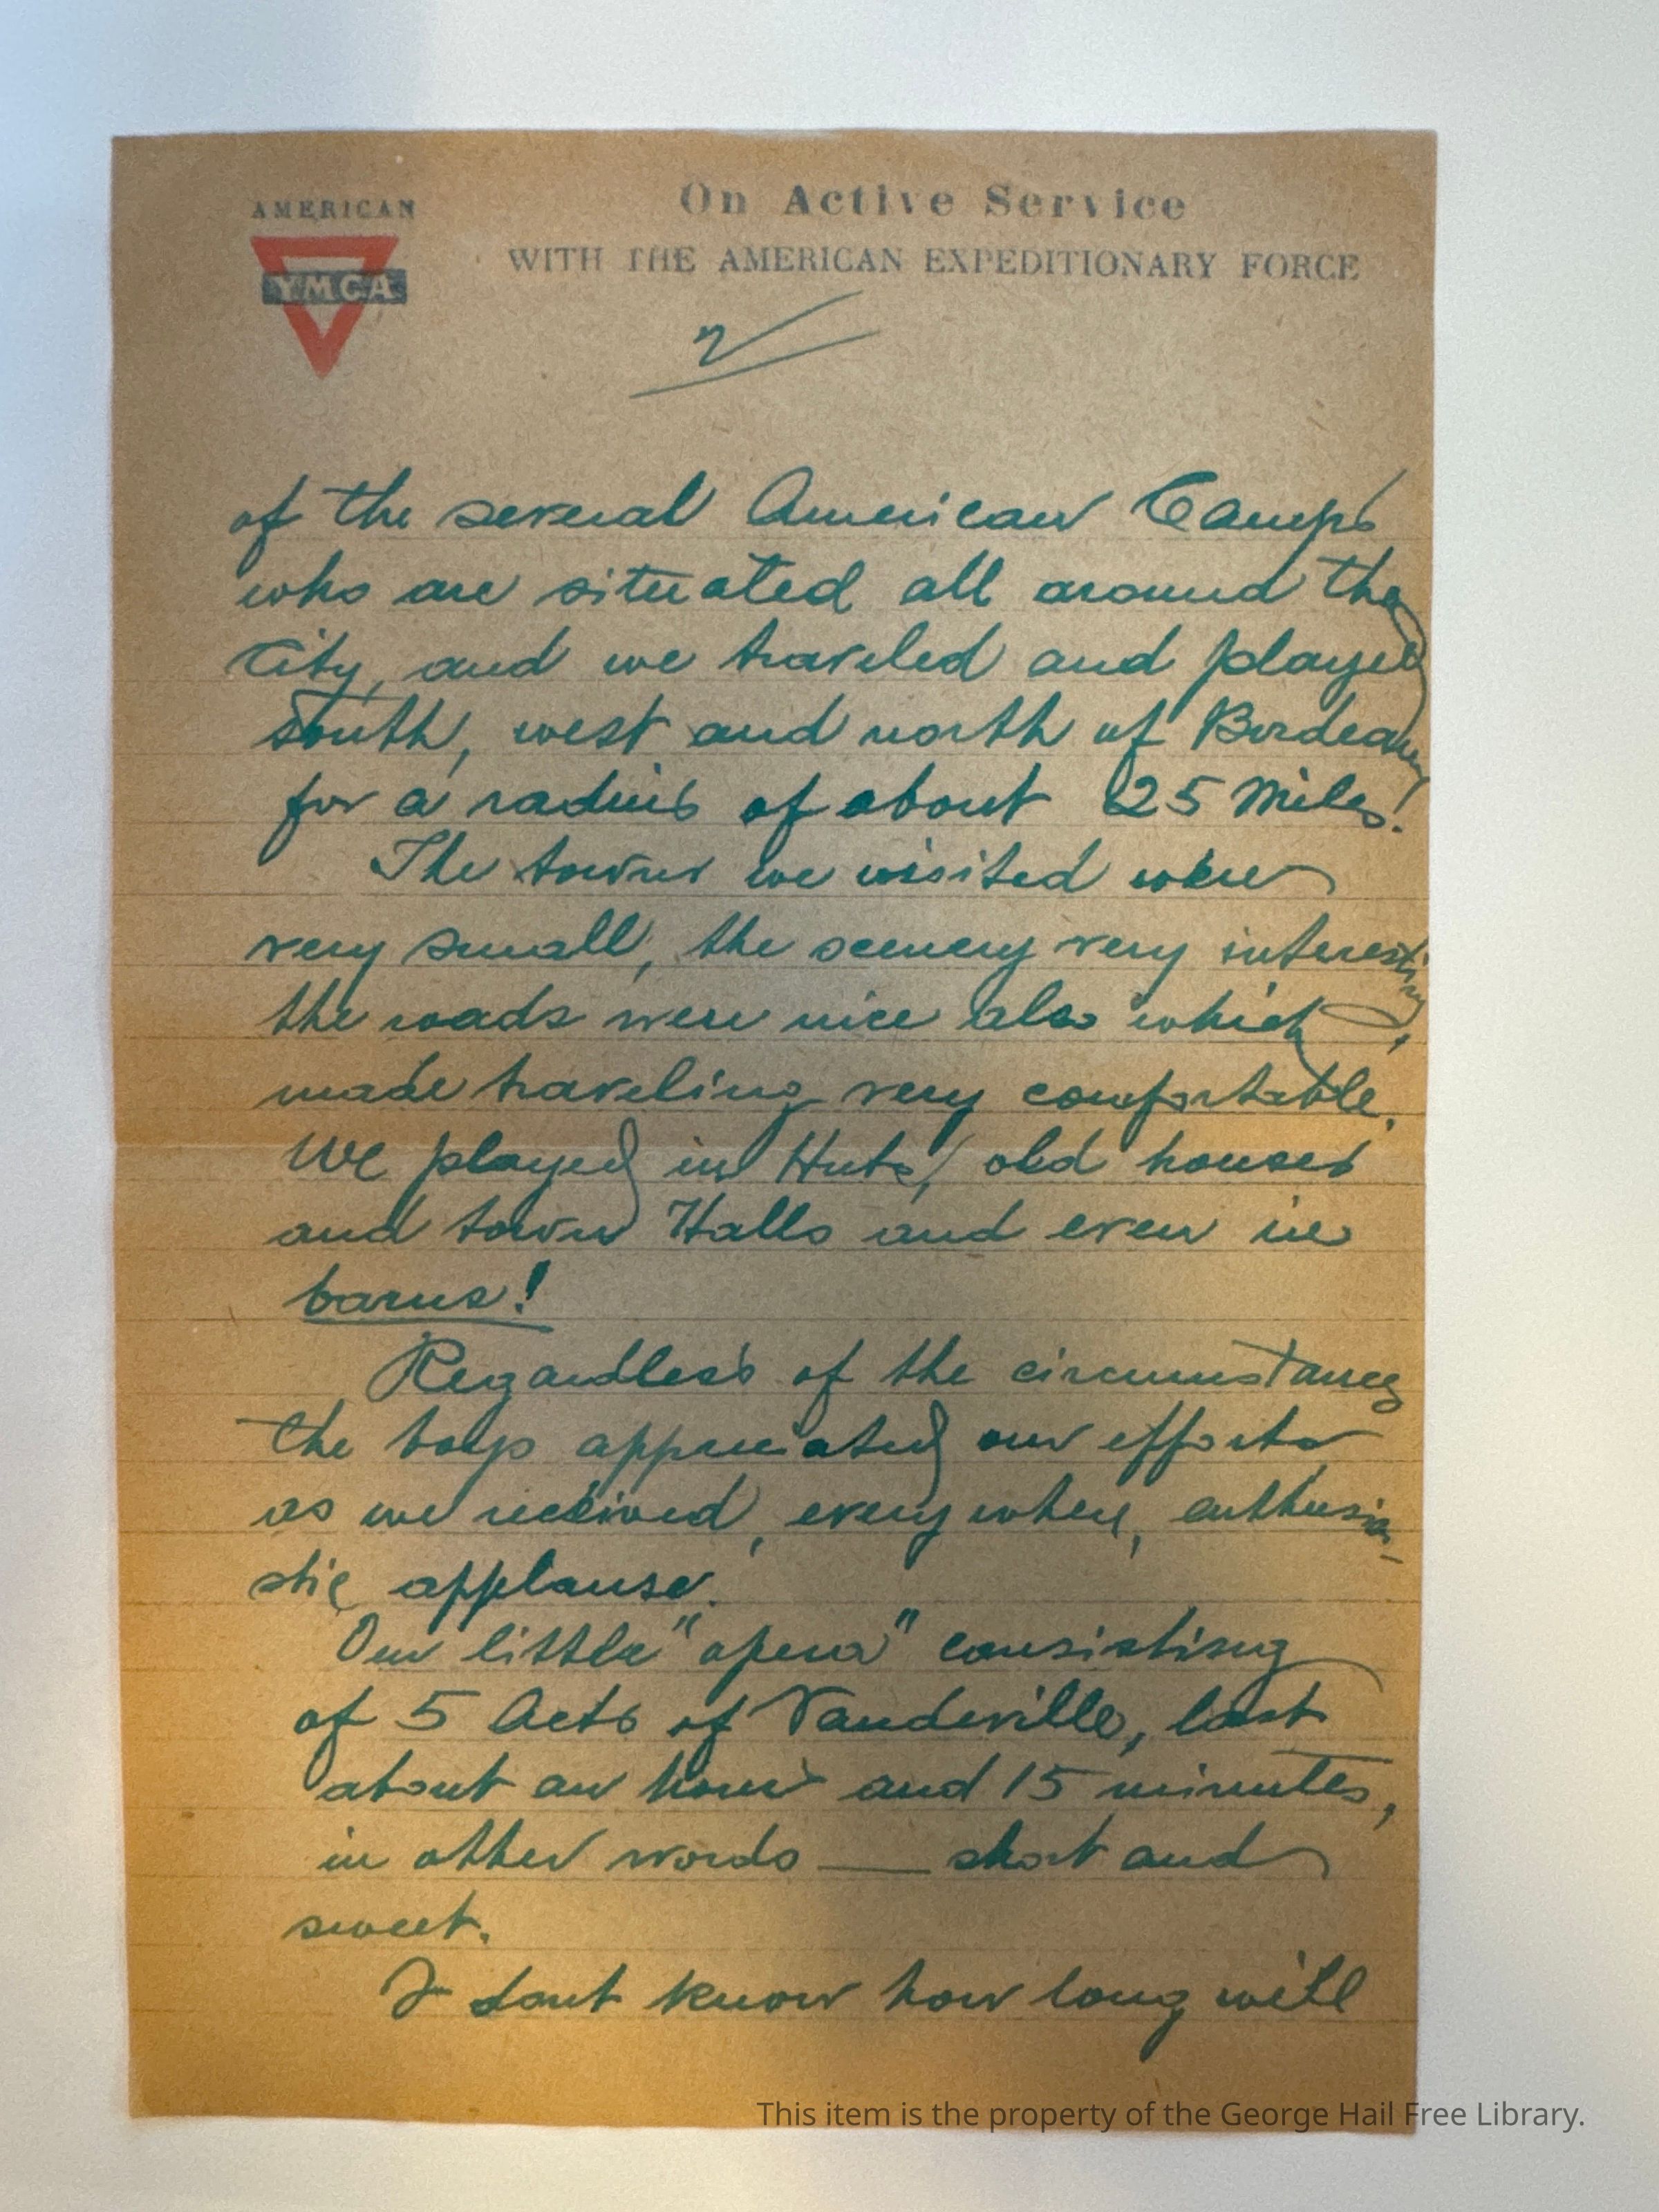 AMERICAN
YMCA
On Active Service
WITH THE AMERICAN EXPEDITIONARY FORCE
2
of the several American Camps
who are situated all around the
City, and we traveled and played
south, west and north of Bordeaux
for a radius of about 25 Miles!
The towns we visited were
very small, the scenery very interesting,
the roads were nice also which
made traveling very comfortable.
We played in Huts, old houses
and town Halls and even in
barns!
Regardless of the circumstances
the boys appreciated our efforts
as we received, everywhere, enthusia-
stic applause.
Our little "opera" consisting
of 5 Acts of Vaudeville, last
about an hour and 15 minutes,
in other words — short and
sweet.
I dont know how long will
This item is the property of the George Hail Free Library.